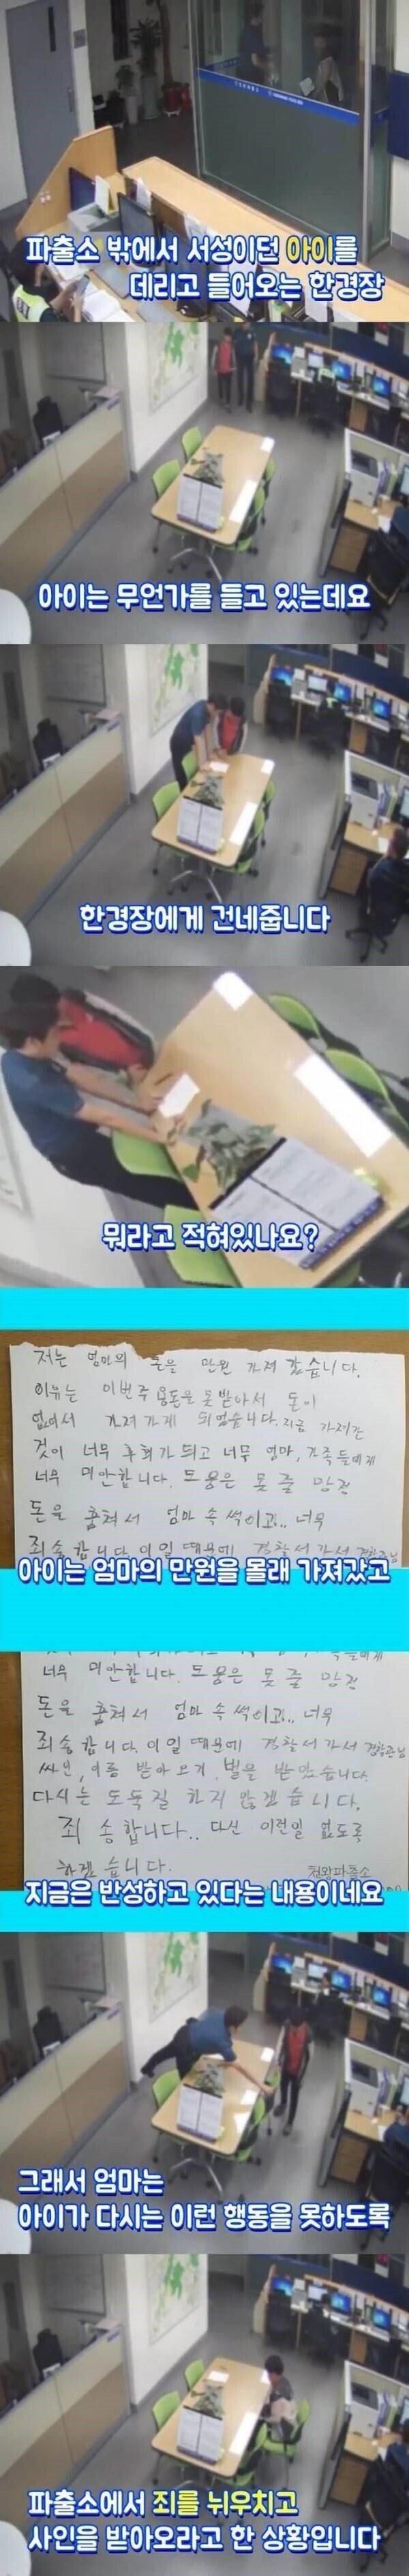 파출소 밖에서 서성이던 아이를
데리고 들어오는 한경장
아이는 무언가를 들고 있는데요
한경장에게 건네줍니다
뭐라고 적혀있나요?
저는 엄마의 돈을 만원 가져 갔습니다.
이유는 이번주 용돈을 못받아서 돈이
없어서 가져가게 되었습니다. 지금 가져간
것이 너무 후회가 되고 너무 엄마, 가족들에게
너무 미안합니다. 도움은 못 줄 망정
돈을 훔쳐서 엄마 속 썩이고.. 너무
죄송합니다. 이일 때문에 경찰서 가서 경찰관님
아이는 엄마의 만원을 몰래 가져갔고
너무 미안합니다. 도움은 못 줄 망정
돈을 훔쳐서 엄마 속 썩이고.. 너무
죄송합니다. 이일 때문에 경찰서 가서 경찰관님
싸인, 이름 받아오기, 벌을 받았습니다.
다시는 도둑질 하지 않겠습니다.
죄송합니다.. 다신 이런일 없도록
하겠습니다.
천왕파출소
지금은 반성하고 있다는 내용이네요
그래서 엄마는
아이가 다시는 이런 행동을 못하도록
파출소에서 죄를 뉘우치고
사인을 받아오라고 한 상황입니다